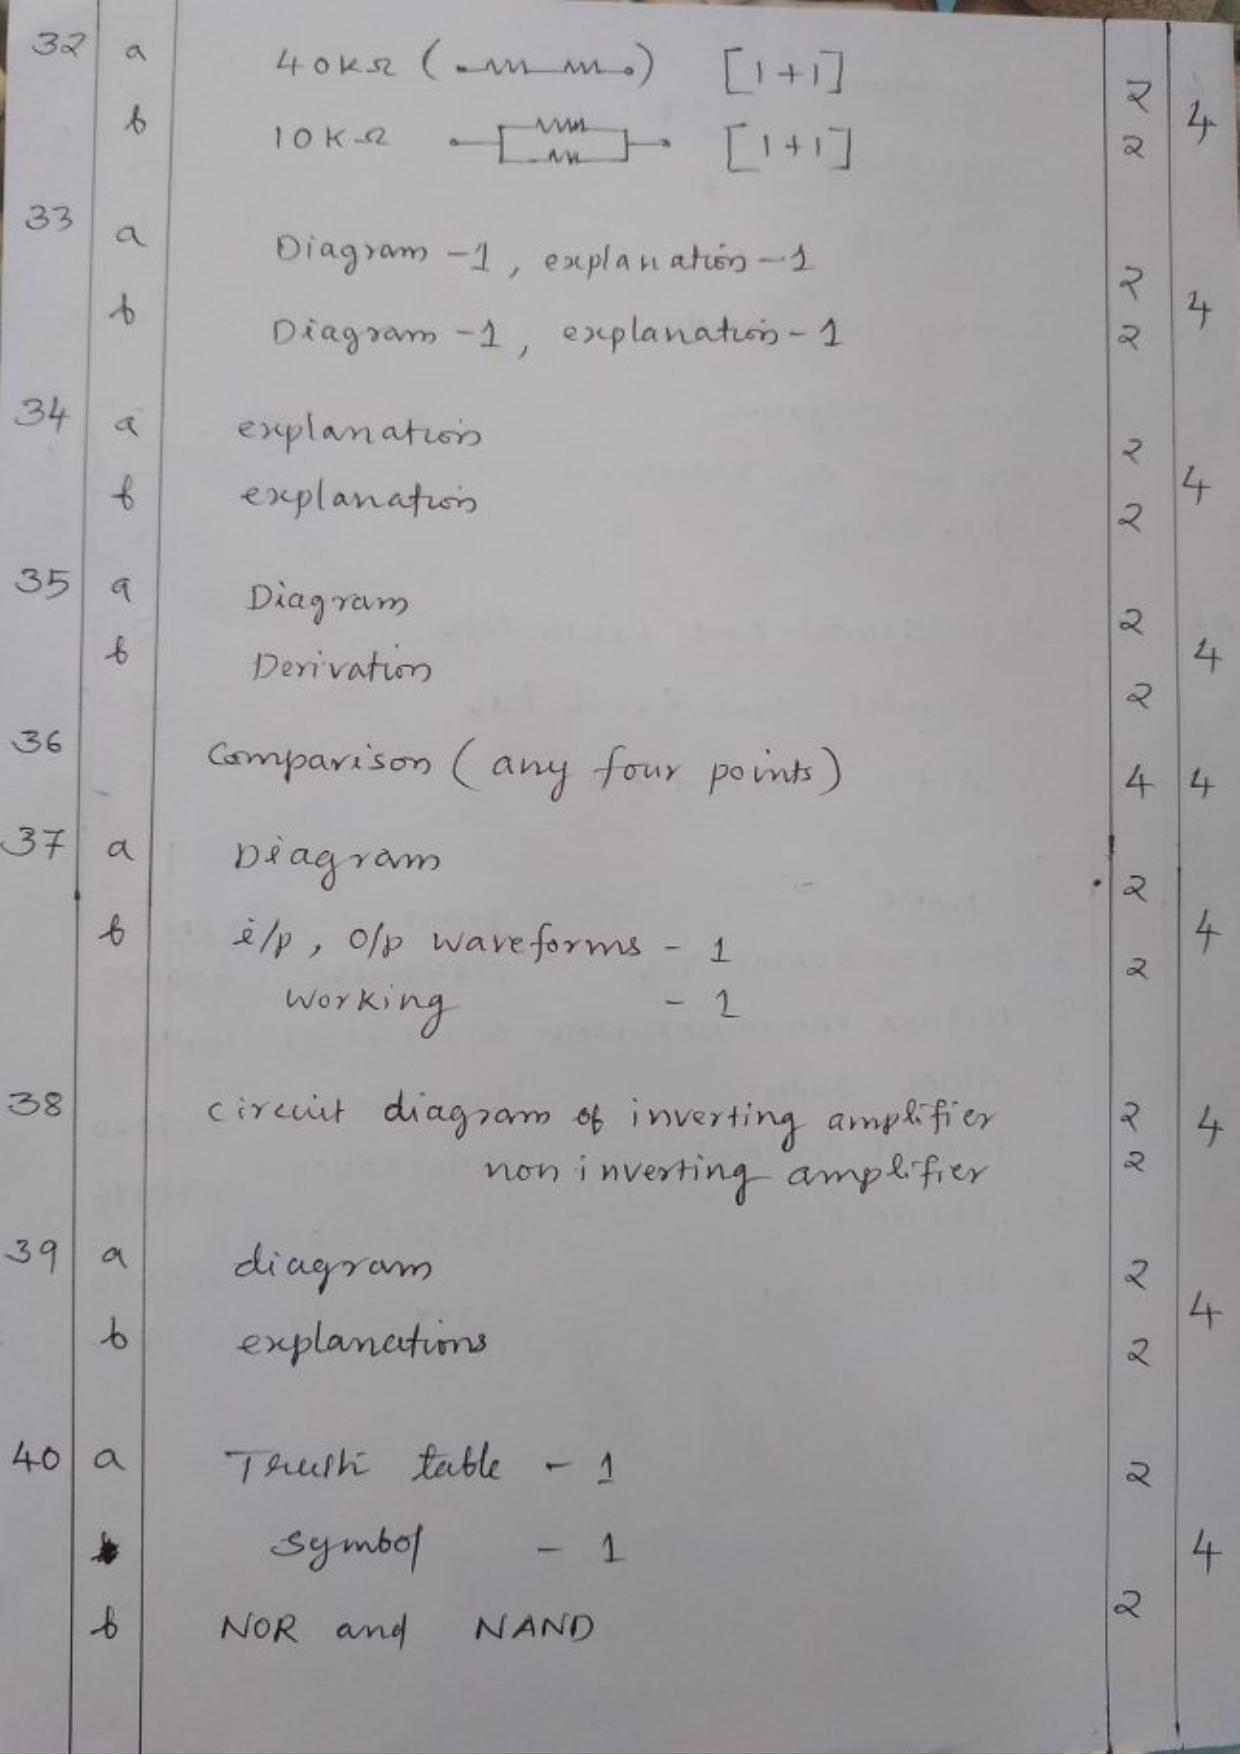 32 a 40KΩ ( ) [1+1] 2 4
b 10KΩ [1+1] 2
33 a Diagram -1, explanation -1 2 4
b Diagram -1, explanation - 1 2
34 a explanation 2 4
b explanation 2
35 a Diagram 2 4
b Derivation 2
36 Comparison (any four points) 4 4
37 a Diagram 2 4
b i/p, o/p waveforms - 1 2
working - 1
38 circuit diagram of inverting amplifier 2 4
non inverting amplifier 2
39 a diagram 2 4
b explanations 2
40 a Truth table - 1 2
symbol - 1 4
b NOR and NAND 2